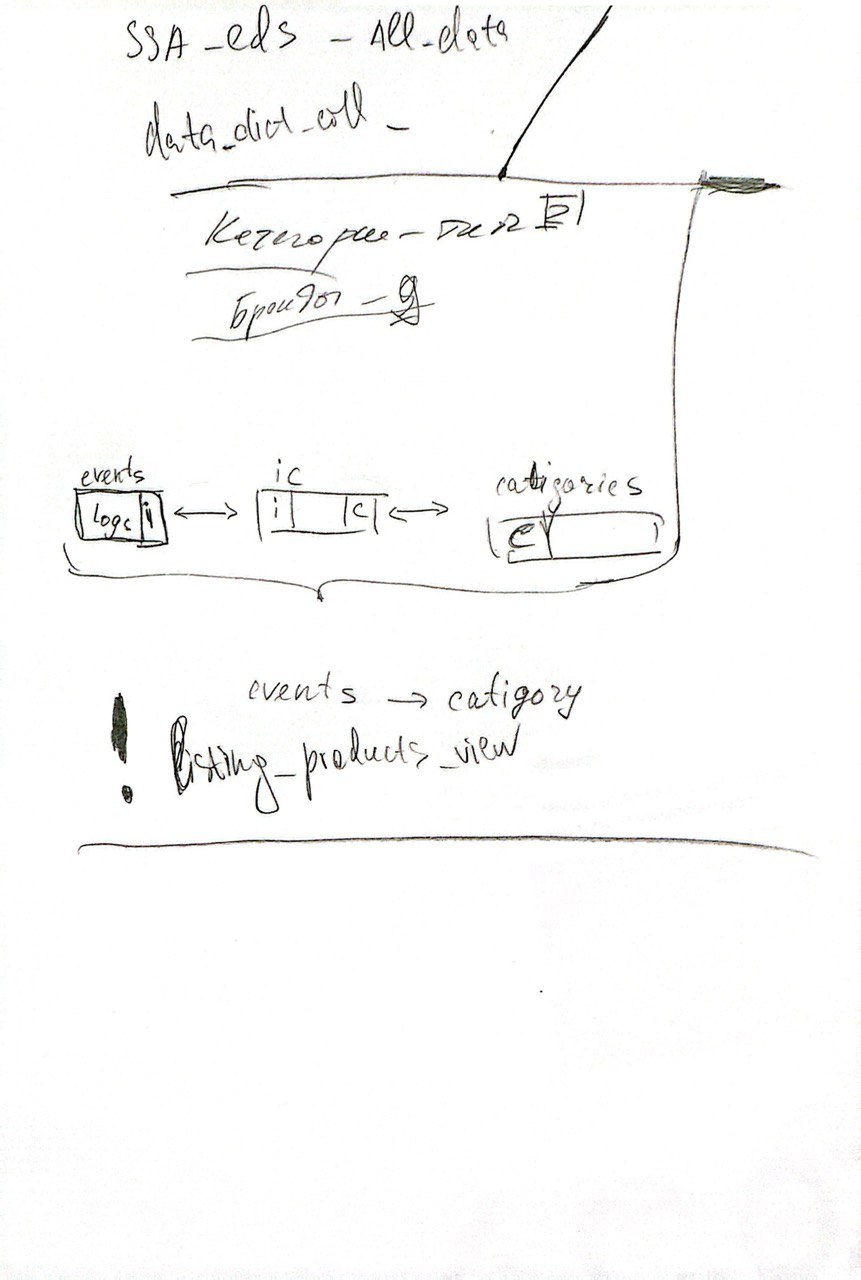 SSA_eds - All_data
data_dict_coll -
Категории -
Бренды -
events
ic
catigories
Logs i
i c
c
events → catigory
! Listing_products_view